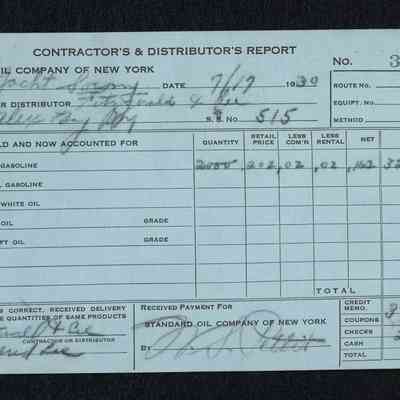 CONTRACTOR'S & DISTRIBUTOR'S REPORT
OIL COMPANY OF NEW YORK No. 3
Yacht DATE 7/17 1930 ROUTE No.
R DISTRIBUTOR Fitzgerald & Lee EQUIPT. No.
Alex Bay NY S. S. No. 515 METHOD
LD AND NOW ACCOUNTED FOR QUANTITY RETAIL PRICE LESS COM'N LESS RENTAL NET
GASOLINE 2000 .202 .02 .02 .162 32
GASOLINE
WHITE OIL
OIL GRADE
FT OIL GRADE
TOTAL
S CORRECT, RECEIVED DELIVERY
E QUANTITIES OF SAME PRODUCTS
& Lee
CONTRACTOR OR DISTRIBUTOR
Lee
RECEIVED PAYMENT FOR
STANDARD OIL COMPANY OF NEW YORK
BY
CREDIT MEMO.
COUPONS 3
CHECKS
CASH 2
TOTAL